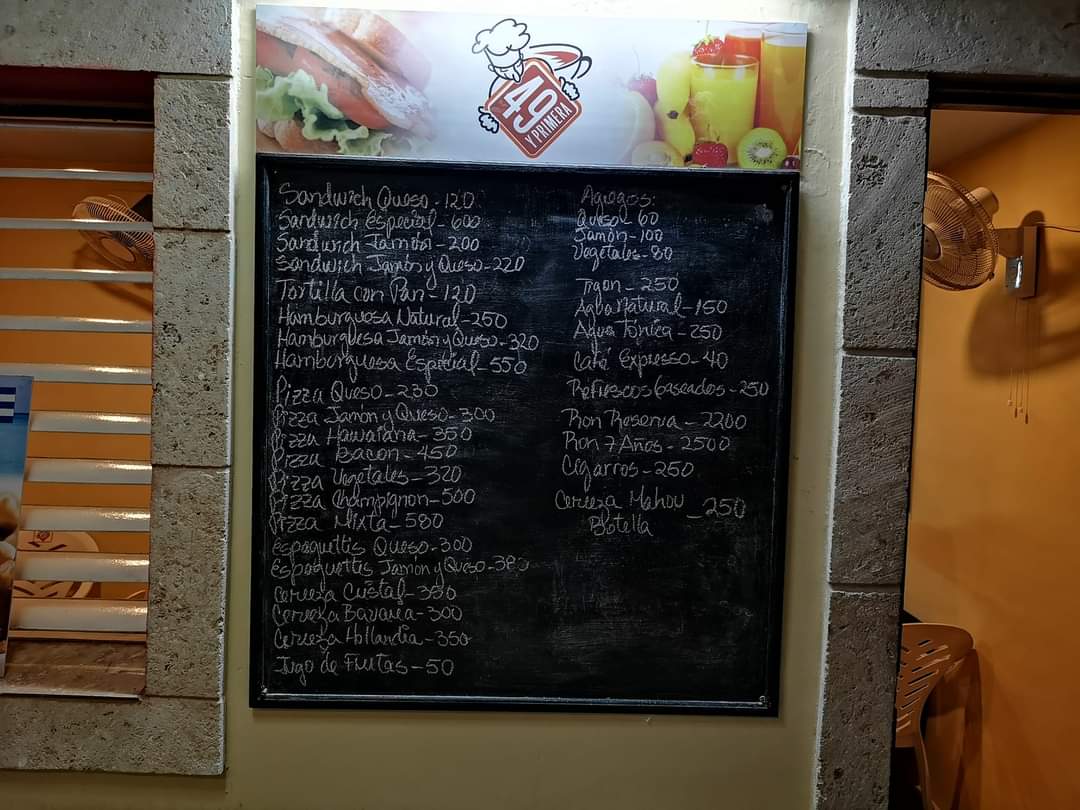 49
Y PRIMERA
Sandwich Queso - 120
Sandwich Especial - 600
Sandwich Jamón - 200
Sandwich Jamón y Queso - 220
Tortilla con Pan - 120
Hamburguesa Natural - 250
Hamburguesa Jamón y Queso - 320
Hamburguesa Especial - 550
Pizza Queso - 230
Pizza Jamon y Queso - 300
Pizza Hawaiana - 350
Pizza Bacon - 450
Pizza Vegetales - 320
Pizza Champignon - 500
Pizza Mixta - 580
Espaguettis Queso - 300
Espaguettis Jamon y Queso - 380
Cerveza Cristal - 350
Cerveza Bavaria - 300
Cerveza Hollandia - 350
Jugo de Frutas - 50
Agregos:
Queso - 60
Jamón - 100
Vegetales - 80
Trgon - 250
Agua Natural - 150
Agua Tonica - 250
Café Expresso - 40
Refrescos Gaseados - 250
Ron Reserva - 2200
Ron 7 Años - 2500
Cigarros - 250
Cerveza Mahou - 250
Botella